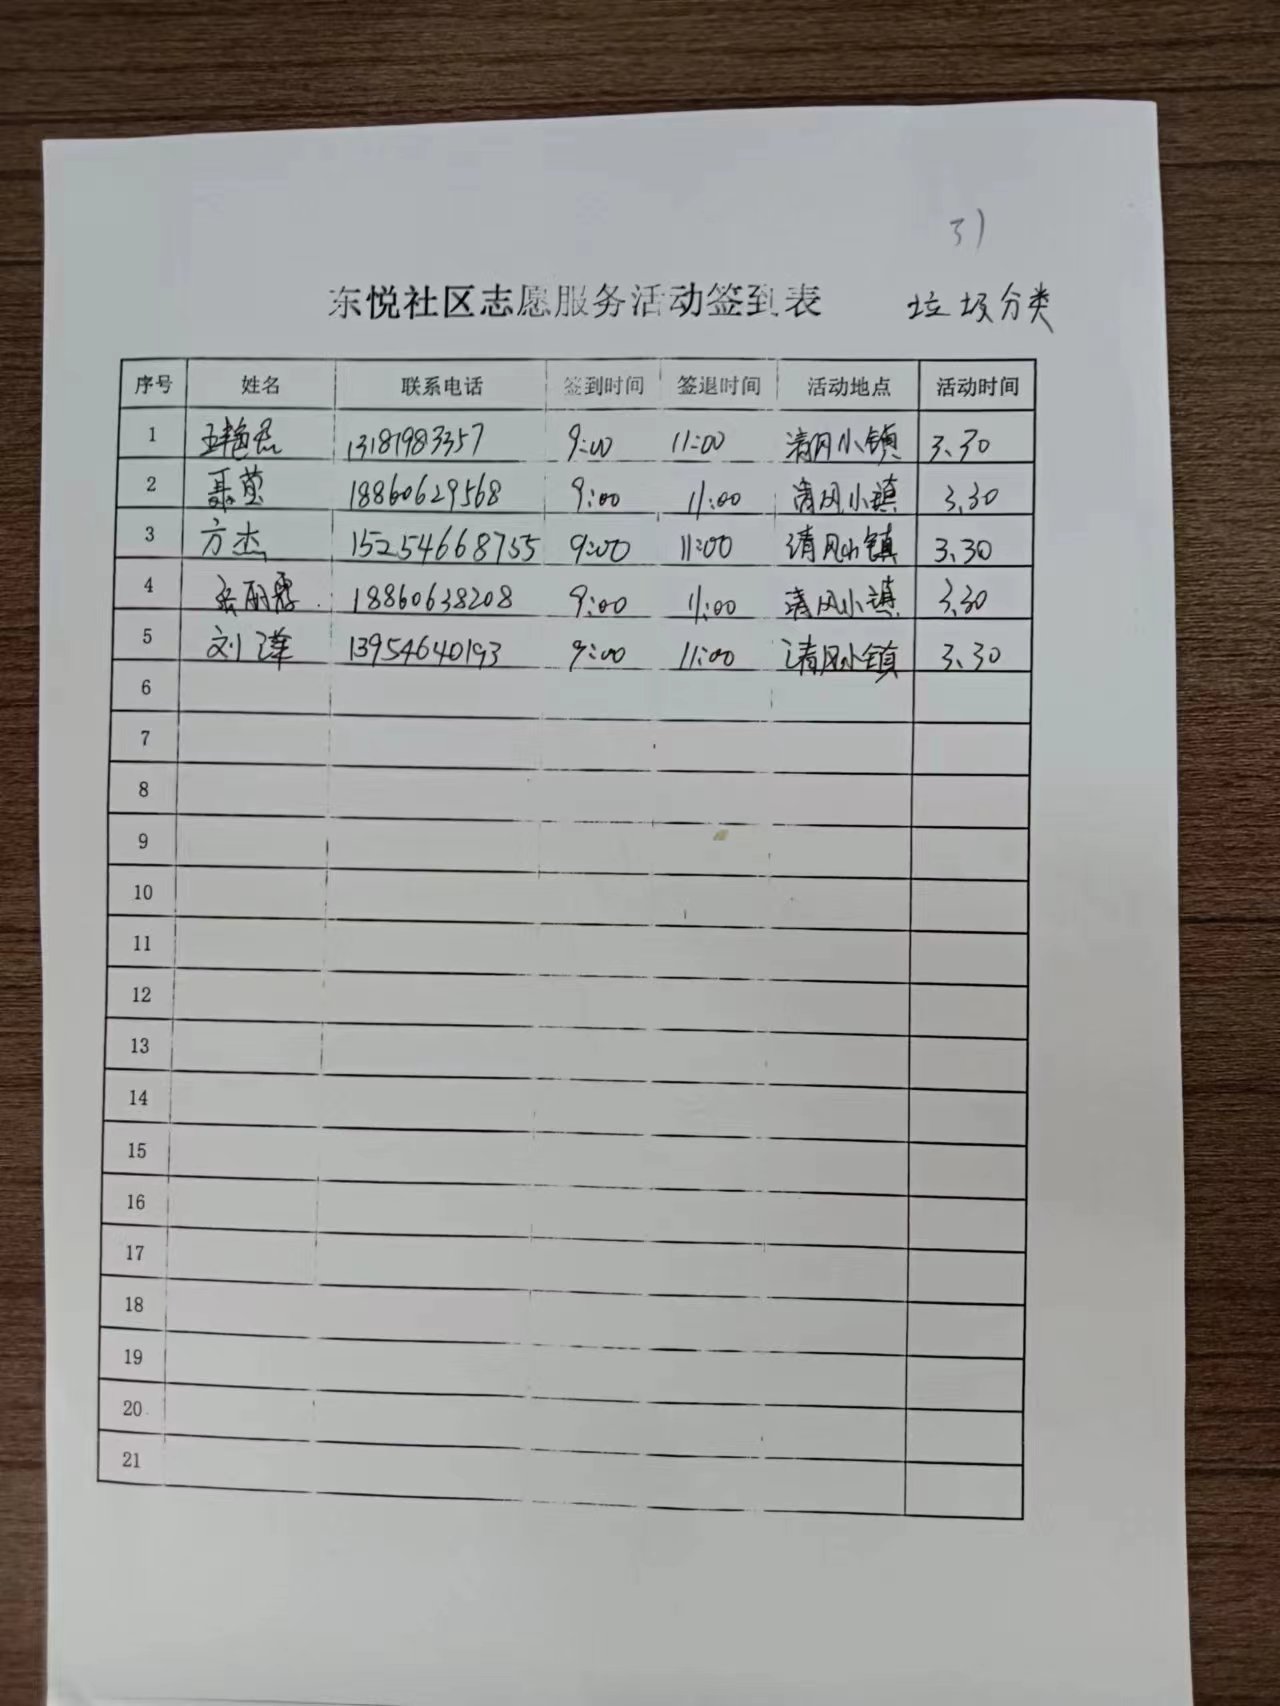 31
东悦社区志愿服务活动签到表 垃圾分类
序号 姓名 联系电话 签到时间 签退时间 活动地点 活动时间
1 13181983357 9:00 11:00 清风小镇 3.30
2 聂莹 18860629568 9:00 11:00 清风小镇 3.30
3 方杰 15254668755 9:00 11:00 清风小镇 3.30
4 18860638208 9:00 11:00 清风小镇 3.30
5 刘萍 13954640193 9:00 11:00 清风小镇 3.30
6
7
8
9
10
11
12
13
14
15
16
17
18
19
20
21